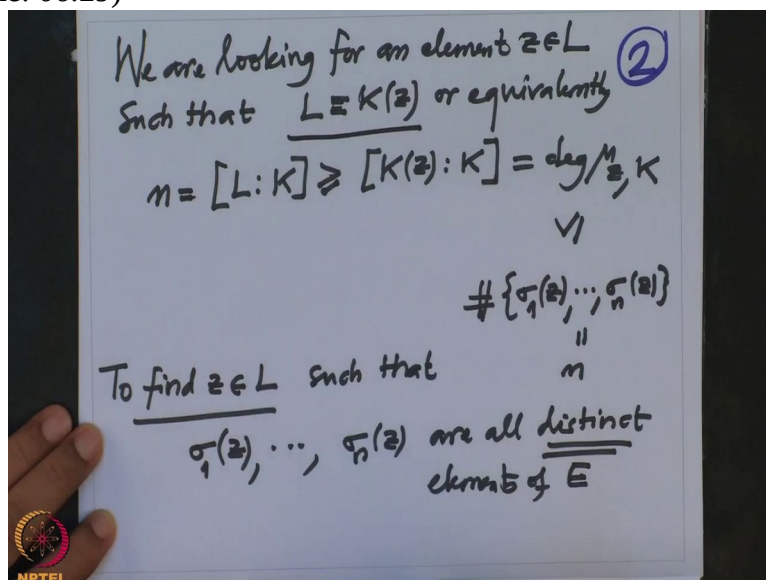 We are looking for an element z ∈ L
②
Such that L = K(z) or equivalently
n = [L : K] ⩾ [K(z) : K] = deg μ_z, K
∨|
# {σ₁(z), ..., σₙ(z)}
||
n
To find z ∈ L such that
σ₁(z), ..., σₙ(z) are all distinct
elements of E
NPTEL